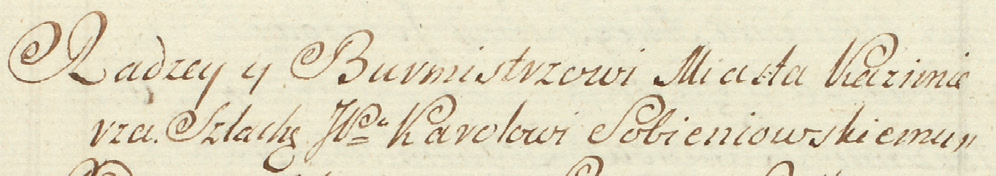 Radzcy y Burmistrzowi Miasta Kazimie
rza. Szlachę Karolowi Sobieniowskiemu